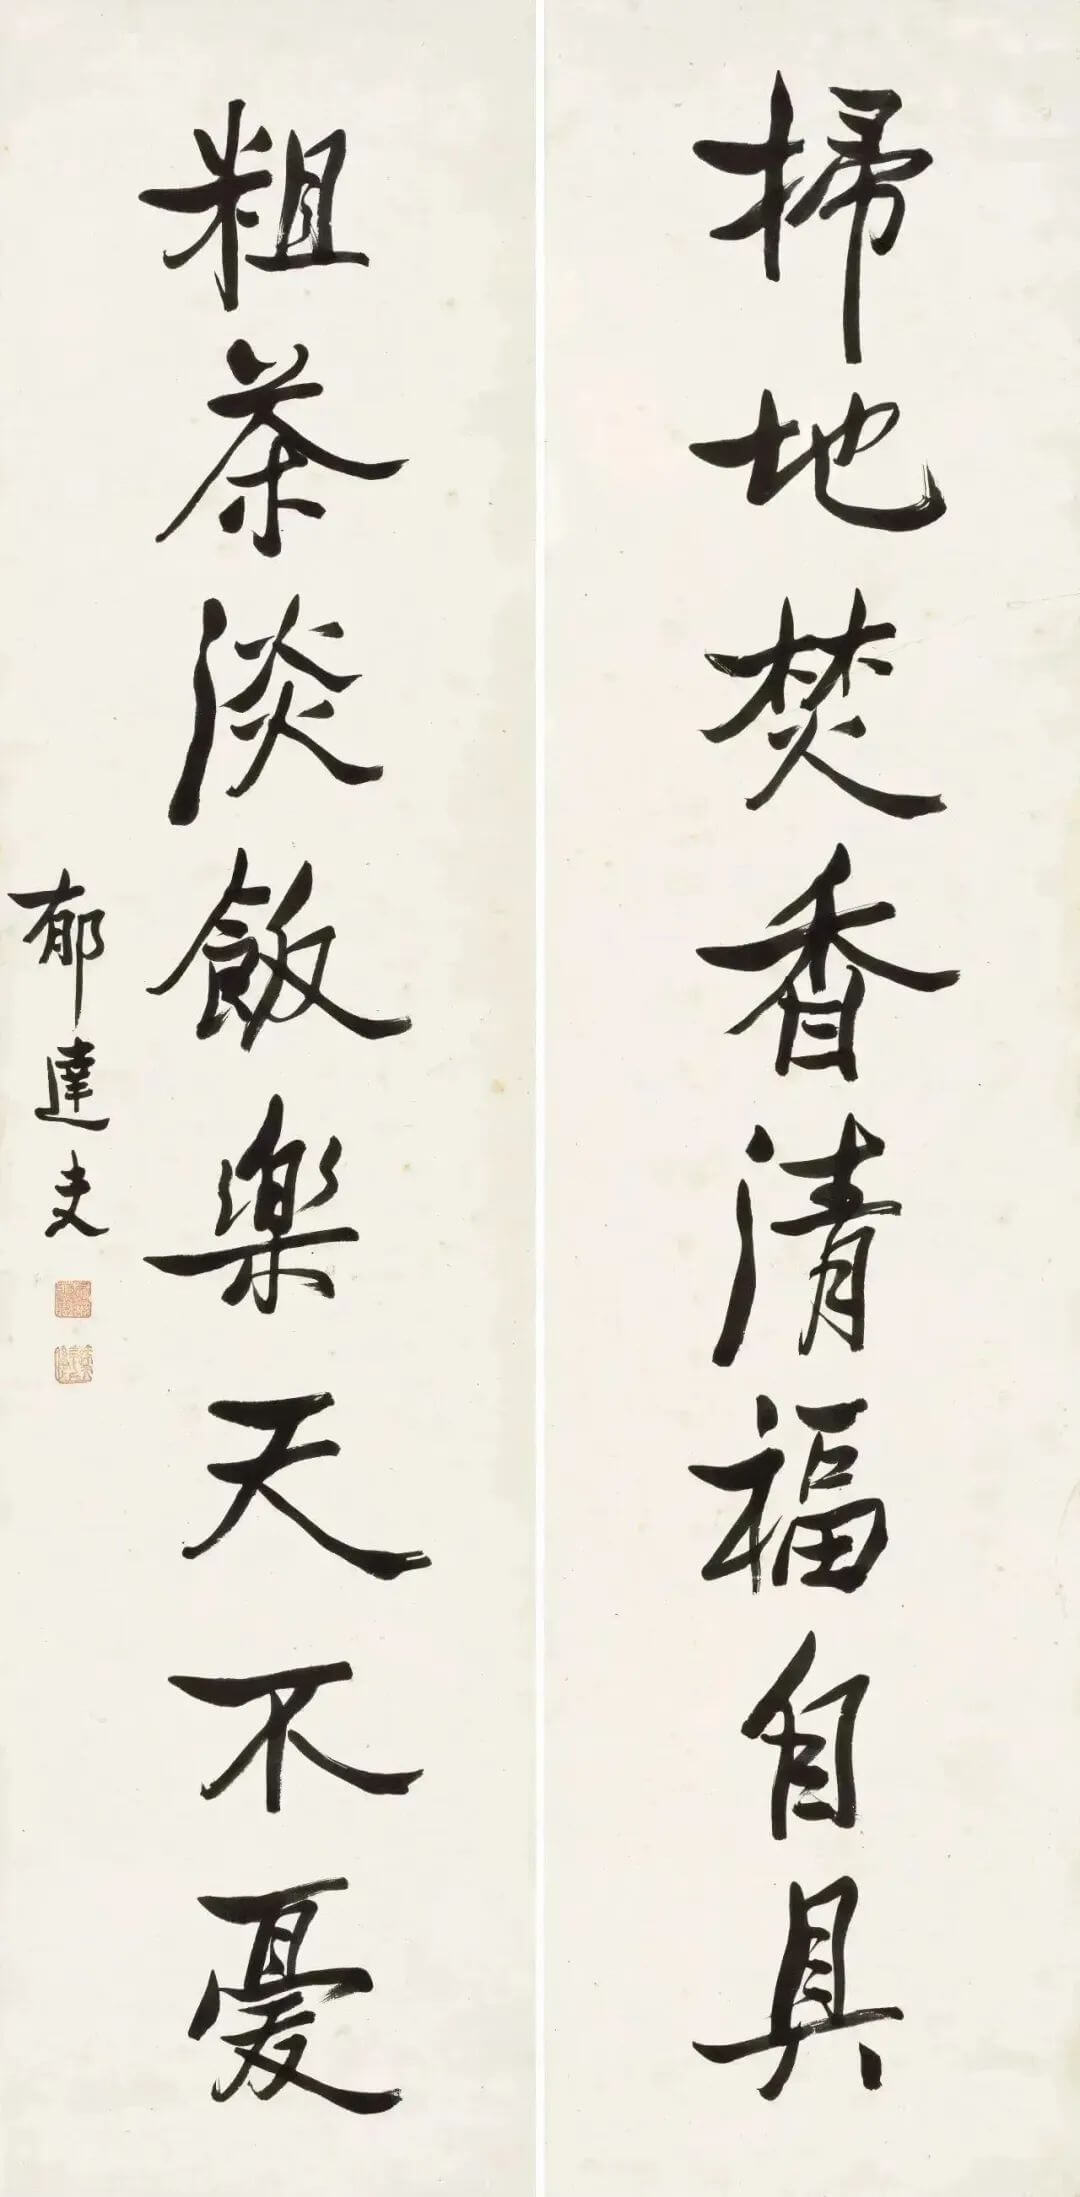 掃地焚香清福自具
粗茶淡飯樂天不憂
郁達夫